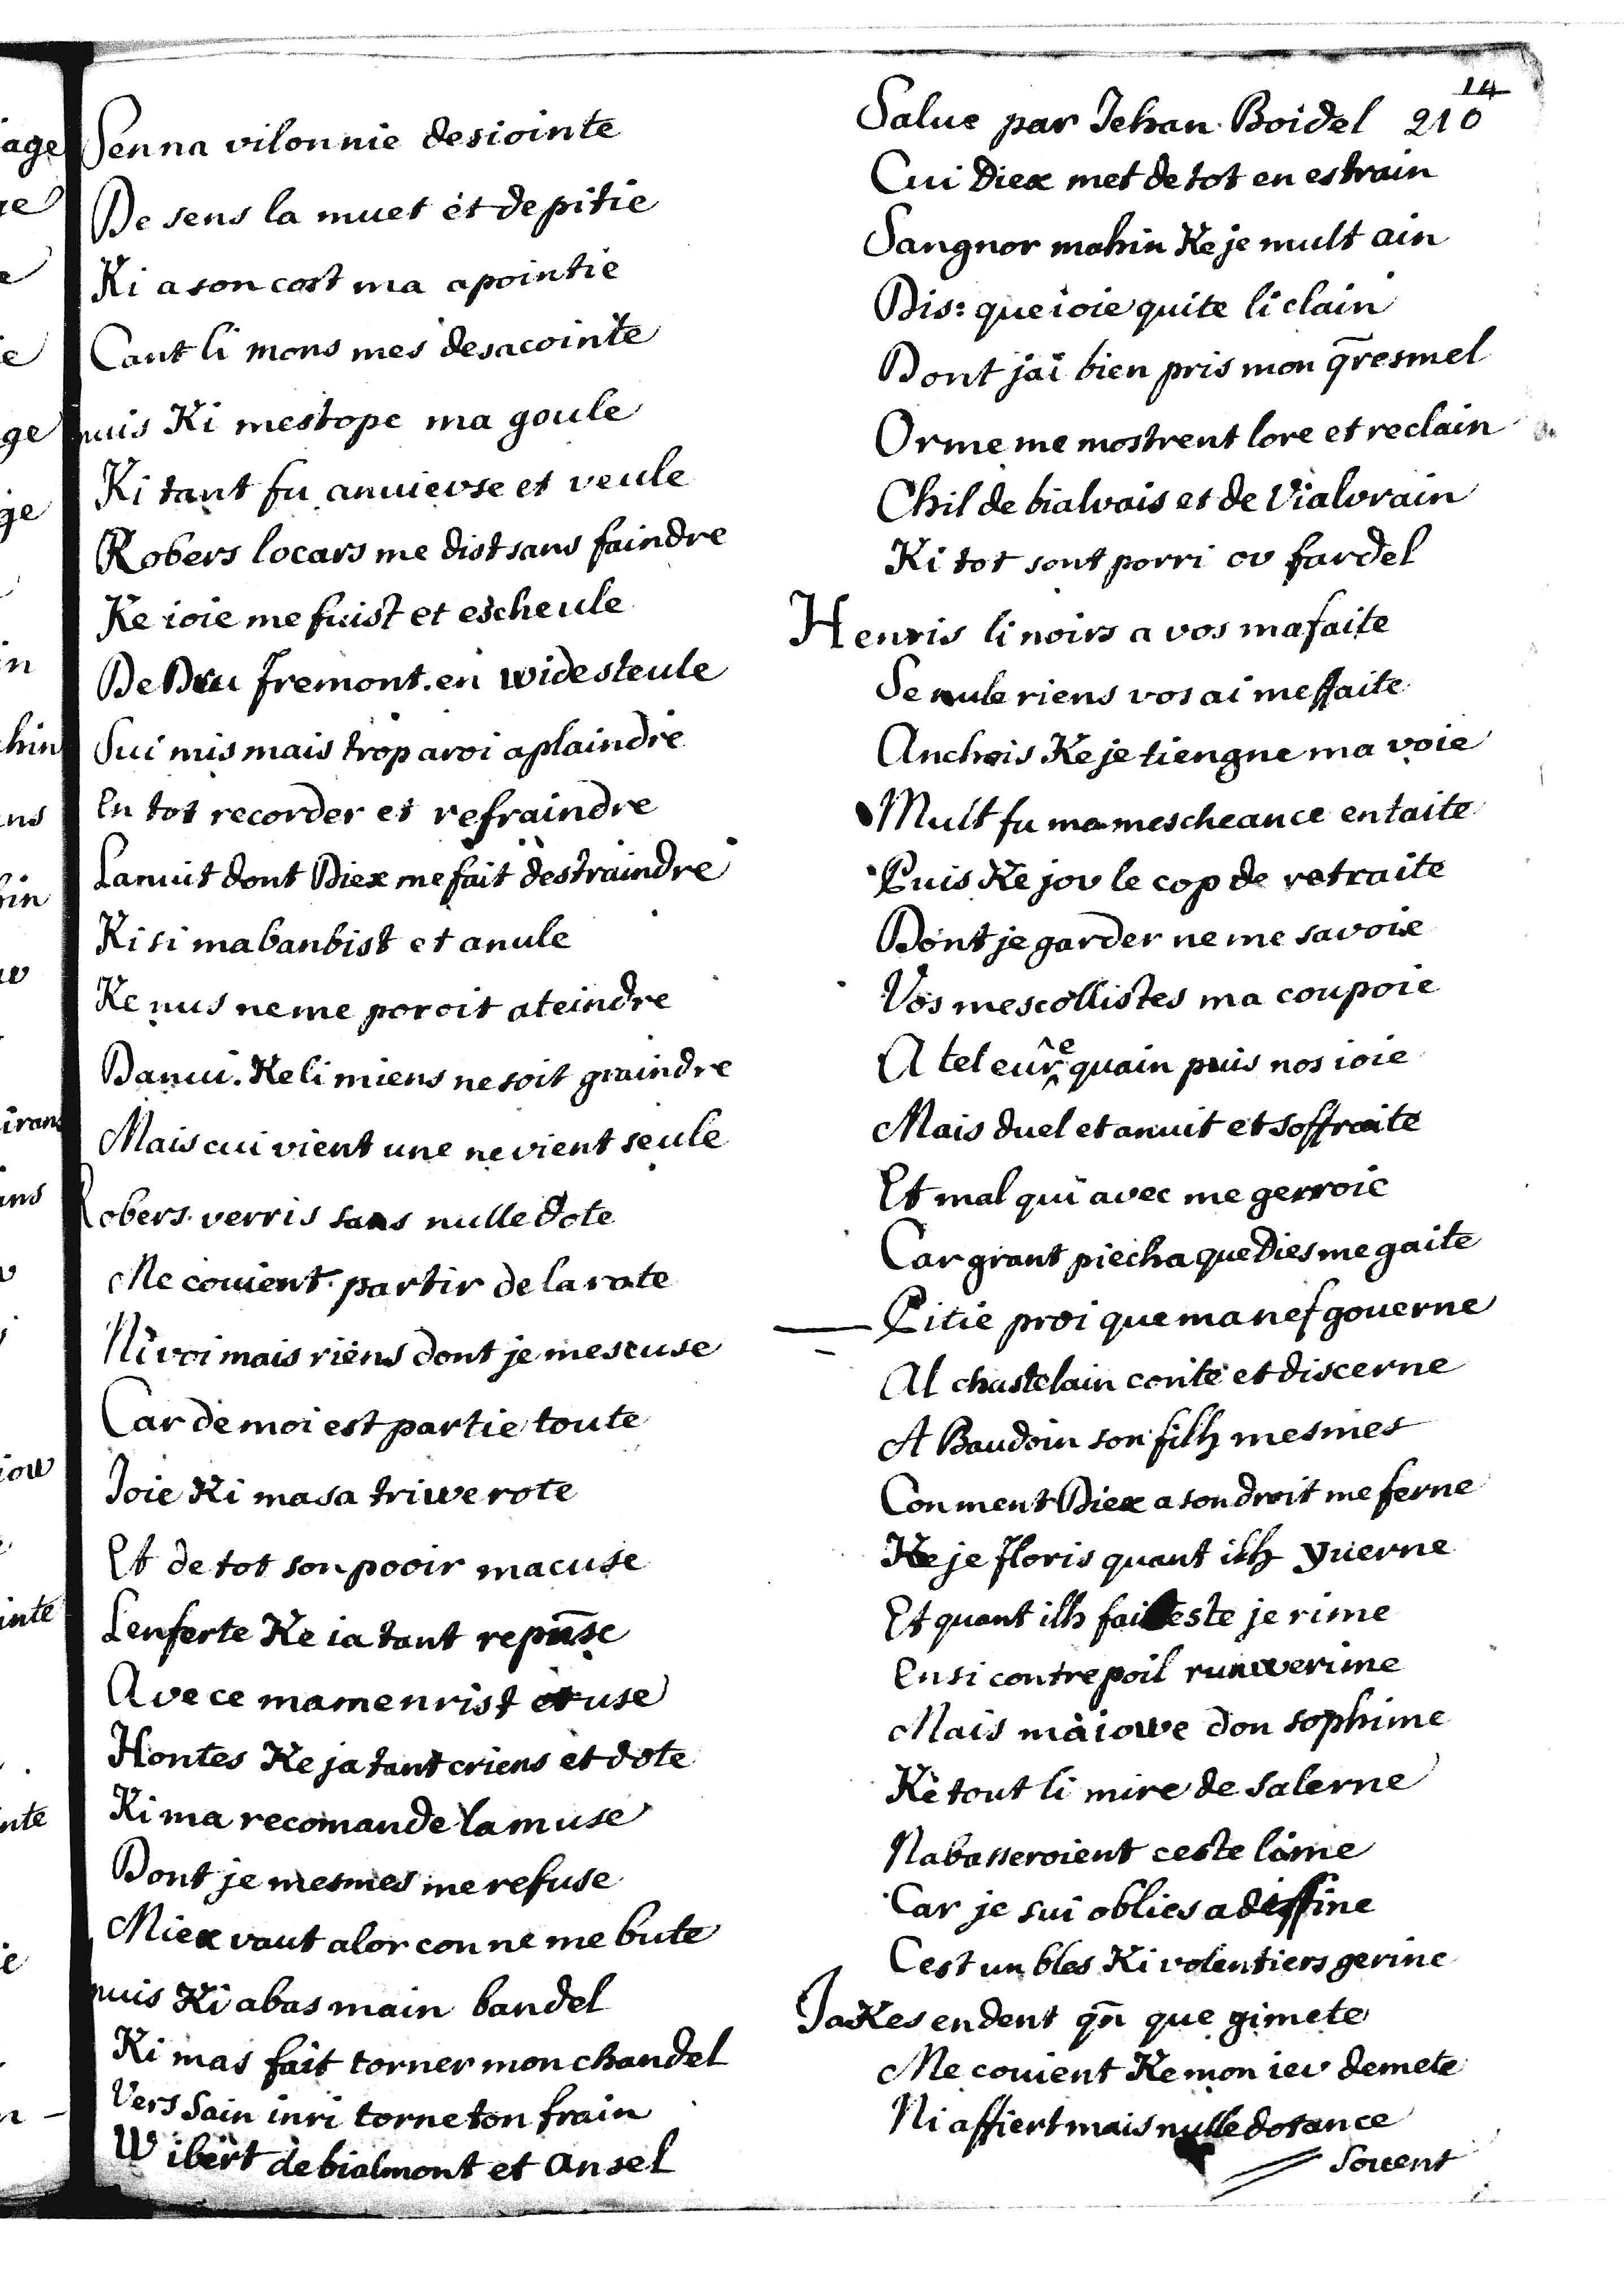 Senna vilonnie desiointe
De sens la muet et de pitie
Ki a son cost ma apointie
Cant li mons mes desacointe
nuis Ki mestope ma goule
Ki tant fu anuieuse et veule
Robers locars me dist sans faindre
Ke ioie me fuist et escheule
De Dru fremont. en wide steule
Sui mis mais trop aroi a plaindre
En tot recorder et refraindre
Lanuit dont Diex me fait destraindre
Ki si mabanbist et anule
Ke nus ne me poroit ateindre
Danui. Ke li miens ne soit graindre
Mais cui vient une ne vient seule
Robers verris sans nulle dote
Me couient partir de la rote
Ni voi mais riens dont je mescuse
Car de moi est partie toute
Joie Ki ma sa triwe rote
Et de tot son pooir macuse
Lenferte Ke ia tant repūse
Avec ce mamenrist et use
Hontes Ke ja tant criens et dote
Ki ma recomande la muse
Dont je mesmes me refuse
Miex vaut alor con ne me bute
nuis Ki abas main bandel
Ki mas fait torner mon chandel
Vers Sain inri torne ton frain
Wibert de bialmont et Ansel
14
Salue par Jehan Boidel 210
Cui Diex met de tot en estrain
Sangnor mahin Ke je mult ain
Dis: que ioie quite li clain
Dont jai bien pris mon q̄resmel
Orme me mostrent lore et reclain
Chil de bialvais et de Vialvrain
Ki tot sont porri ou fardel
Henris li noirs a vos mafaite
Se nule riens vos ai meffaite
Anchois Ke je tiengne ma voie
Mult fu ma mescheance entaite
Puis Ke jou le cop de retraite
Dont je garder ne me savoie
Vos mescollistes ma coupoie
A tel eure quain puis nos ioie
Mais duel et anuit et soffraite
Et mal qui avec me gerroie
Car grant piecha que Dies me gaite
Pitie proi que ma nef gouerne
Al chastelain conte et discerne
A Baudoin son filh mesmes
Conment Diex a son droit me ferne
Ke je floris quant ilh yuerne
Et quant ilh fait este je rime
Ensi contrepoil runwerime
Mais maiowe don sophime
Ke tout li mire de Salerne
Nabasseroient ceste lime
Car je sui oblies a diffine
Cest un bles Ki volentiers gerine
Jakes endent qn̄ que gimete
Me couient Ke mon ieu demete
Ni affiert mais nulle dotance
Souent